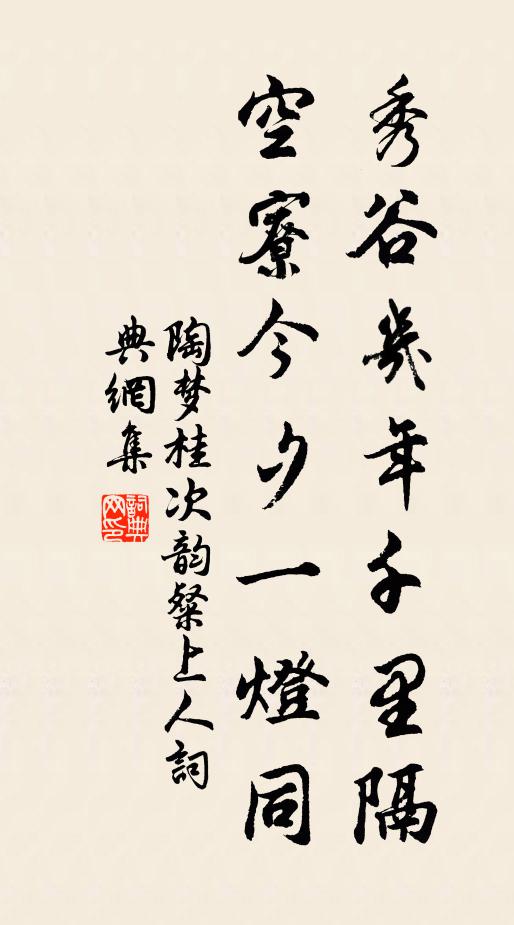 秀谷幾年千里隔
空寮今夕一燈同
陶梦桂次韵粲上人詞
典網集
詞典
网印